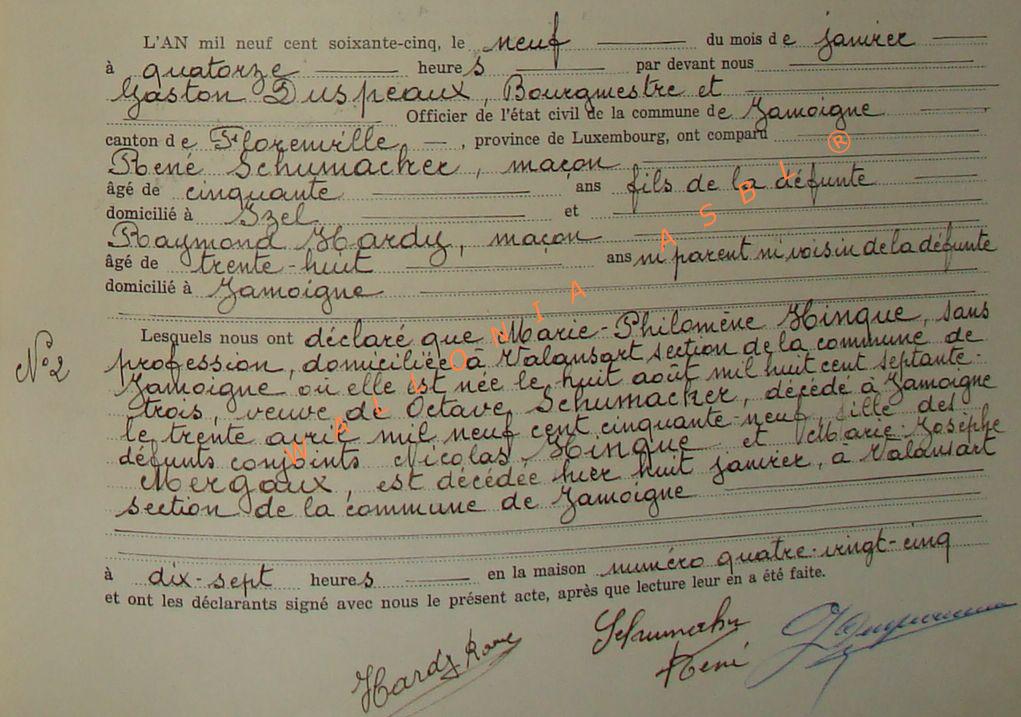 L'AN mil neuf cent soixante-cinq, le neuf du mois de janvier
à quatorze heures par devant nous
Gaston Duspeaux, Bourgmestre et
Officier de l'état civil de la commune de Jamoigne
canton de Florenville, province de Luxembourg, ont comparu
René Schumacher, maçon
âgé de cinquante ans fils de la défunte
domicilié à Izel et
Raymond Hardy, maçon
âgé de trente-huit ans ni parent ni voisin de la défunte
domicilié à Jamoigne
Lesquels nous ont déclaré que Marie-Philomène Hinque, sans
N° 2
profession, domiciliée à Valansart section de la commune de
Jamoigne où elle est née le huit août mil huit cent septante-
trois, veuve de Octave Schumacher, décédé à Jamoigne
le trente avril mil neuf cent cinquante-neuf, fille des
défunts conjoints Nicolas Hinque et Marie-Josèphe
Mergaux, est décédée hier huit janvier, à Valansart
section de la commune de Jamoigne
à dix-sept heures en la maison numéro quatre-vingt-cinq
et ont les déclarants signé avec nous le présent acte, après que lecture leur en a été faite.
Hardy
Schumacher
René
WALLONIA ASBL ®